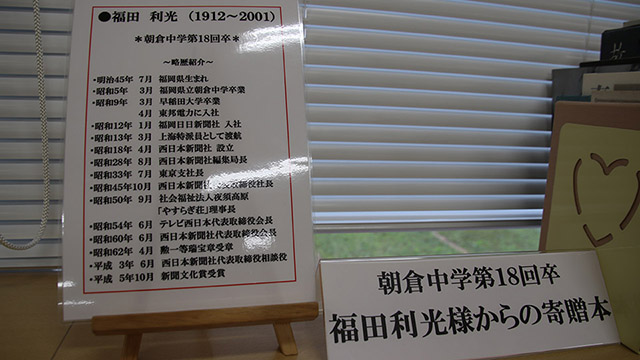 ●福田 利光 (1912～2001)
＊朝倉中学第18回卒＊
～略歴紹介～
・明治45年 7月 福岡県生まれ
・昭和5年 3月 福岡県立朝倉中学卒業
・昭和9年 3月 早稲田大学卒業
4月 東邦電力に入社
・昭和12年 1月 福岡日日新聞社 入社
・昭和13年 3月 上海特派員として渡航
・昭和18年 4月 西日本新聞社 設立
・昭和28年 8月 西日本新聞社編集局長
・昭和33年 7月 東京支社長
・昭和45年10月 西日本新聞社代表取締役社長
・昭和50年 9月 社会福祉法人夜須高原
「やすらぎ荘」理事長
・昭和54年 6月 テレビ西日本代表取締役会長
・昭和60年 6月 西日本新聞社代表取締役会長
・昭和62年 4月 勲一等瑞宝章受章
・平成 3年 6月 西日本新聞社代表取締役相談役
・平成 5年10月 新聞文化賞受賞
朝倉中学第18回卒
福田利光様からの寄贈本